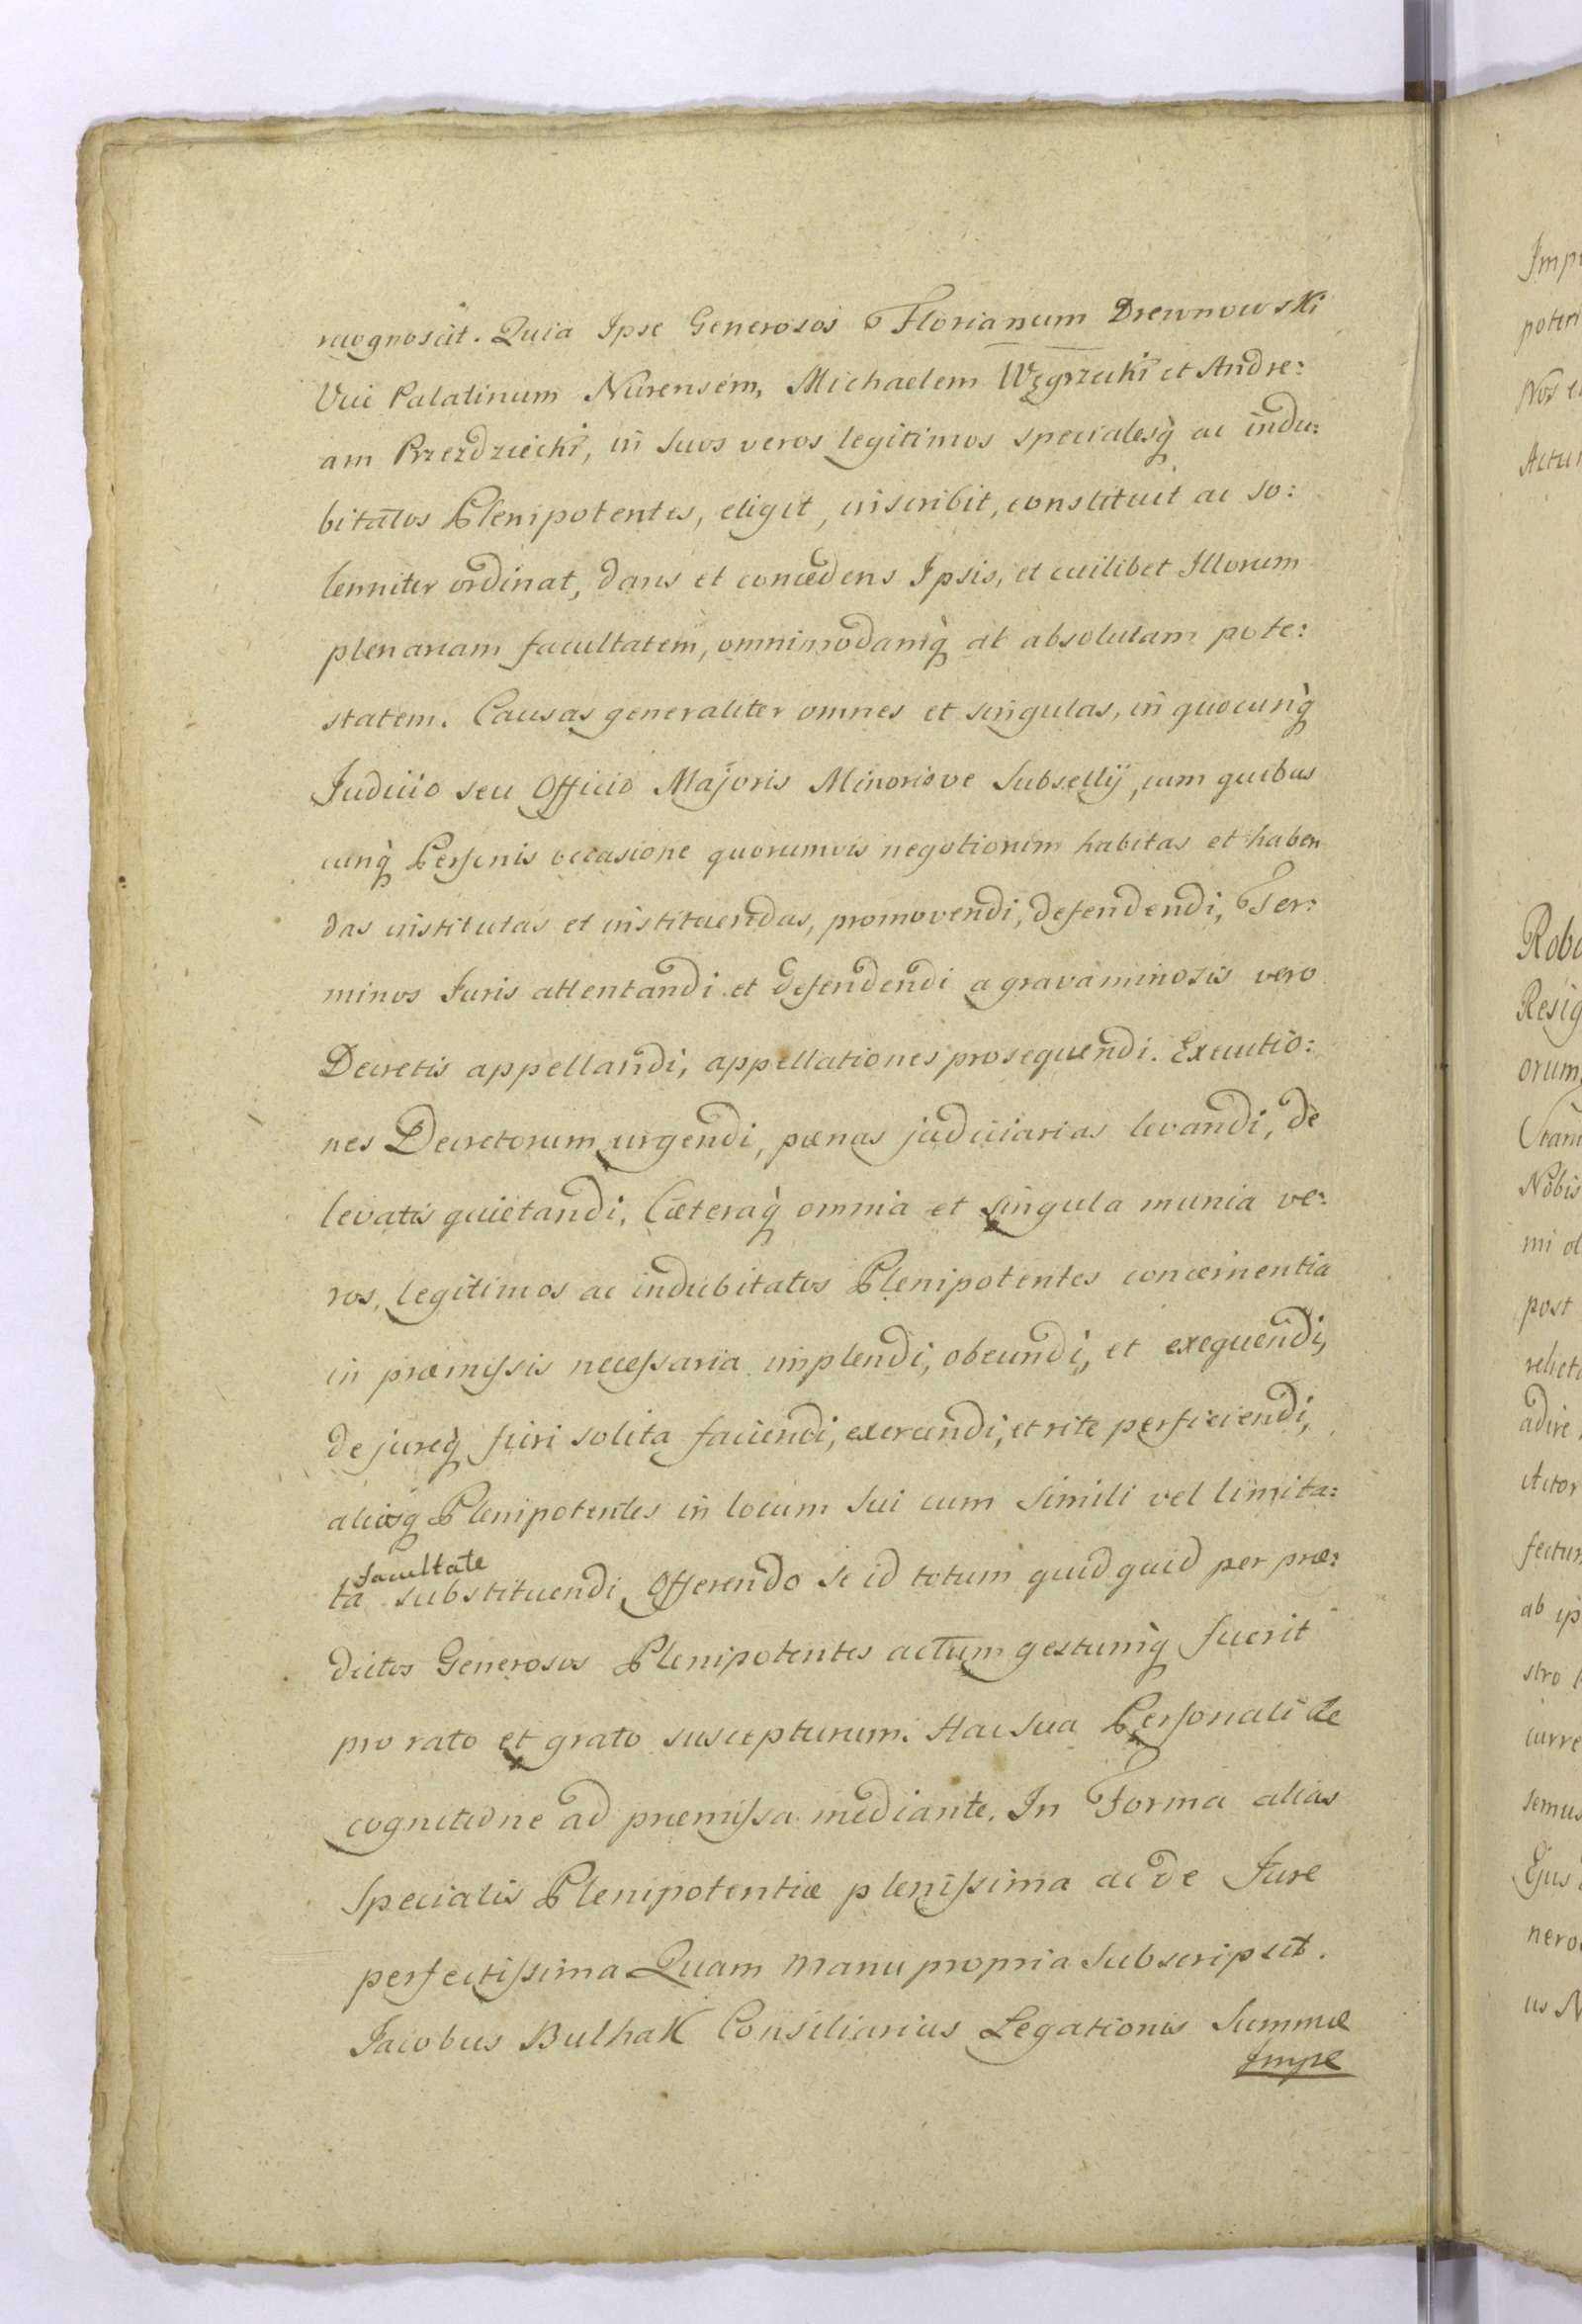 recognoscit. Quia Ipse Generosos Florianum Drewnowski
Vice Palatinum Nurensem, Michaelem Węgrzecki et Andre:
am Przezdziecki, in Suos veros legitimos specialesq̀ ac indu:
bitatos Plenipotentes, eligit, inscribit, constituit ac so:
lenniter ordinat, dans et concedens Ipsis, et cuilibet Illorum
plenariam facultatem, omnimodamq̀ ac absolutam pote:
statem. Causas generaliter omnes et singulas, in quocunq̀
Judicio seu Officio Majoris Minorisve Subsellij, cum quibus
cunq̀ Personis occasione quorumvis negotiorum habitas et haben
das institutas et instituendas, promovendi, defendendi, Ter:
minos Juris attentandi et defendendi a gravaminosis vero
Decretis appellandi, appellationes prosequendi. Executio:
nes Decretorum urgendi, pœnas judiciarias levandi, de
levatis quietandi, Cæteraq̀ omnia et singula munia ve:
ros, legitimos ac indubitatos Plenipotentes concernentia
in præmissis necessaria implendi, obeundi, et exequendi,
de jureq̀ fieri solita faciendi, exercendi, et rite perficiendi,
aliosq Plenipotentes in locum Sui cum Simili vel limita:
facultate
ta substituendi, Offerendo se id totum quidquid per præ:
dictos Generosos Plenipotentes actum gestumq̀ fuerit
pro rato et grato suscepturum. Hac Sua Personali Re
cognitione ad præmissa mediante. In Forma alias
Specialis Plenipotentiæ plenissima ac de Jure
perfectissima Quam manu propria Subscripsit.
Jacobus Bulhak Consiliarius Legationis Summæ
Impe
Imp
poten
Nos
Actu
Robo
Resig
orum,
Nobis
mi
post
relict
adire,
Actor
ab ip
stro
curre
semus
Ejus
nero
us N